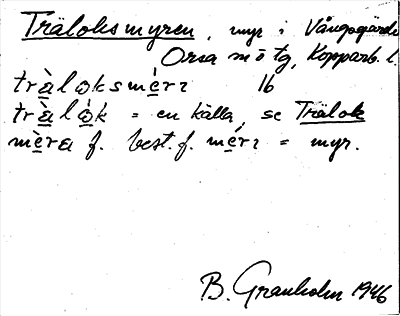 Träloksmyren, myr i Vångsgärde
Orsa sn ö tg, Kopparb. l.
tràlǫksmę́rı 16
tràlǫ́k = en källa, se Trälok
mę̀ra f. best. f. mę́rı = myr.
B. Granholm 1946